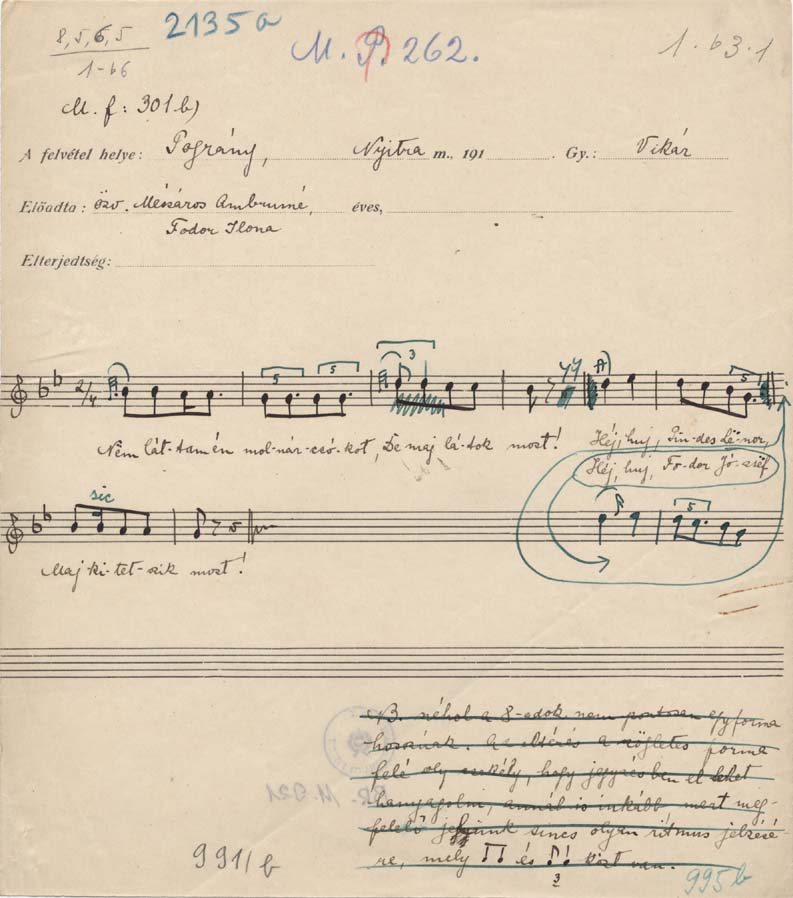 8, 5, 6, 5
1-b6
2135a
M. P. 262.
1. b3. 1
M. f: 301b)
A felvétel helye: Pográny, Nyitra m., 191 . Gy.: Vikár
Előadta: özv. Mészáros Ambrusné, éves,
Fodor Ilona
Elterjedtség:
2/4 5 5 3 5
Nem lát-tam én mol-nár-csó-kot, De maj lá-tok most! Héj, huj, Pin-des Lé-nor,
Héj, huj, Fo-dor Jó-zsëf
sic
5
Maj-ki-tet-szik most!
NB. néhol a 8-adok nem pontosan egyforma
hosszúak. Az eltérés a rögletes forma
felé oly csekély, hogy jegyzésben el lehet
hanyagolni, annál is inkább mert meg-
felelő jelünk sincs olyan ritmus jelzésé-
re, mely és közt van.
3
991/b
995b